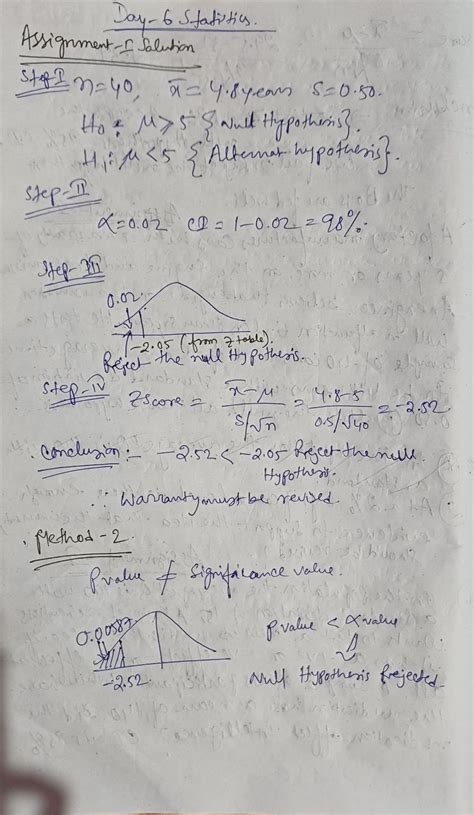 Day-6 Statistics.
Assignment-I Solution
Step-I n=40, x̄ = 4.8 years S=0.50.
H₀: μ ≥ 5 {Null Hypothesis}.
H₁: μ < 5 {Alternat hypothesis}.
Step-II
α=0.02 CI = 1-0.02 = 98%.
Step-III
0.02
-2.05 (from Z table).
Reject the null Hypothesis.
Step-IV Zscore = (x̄-μ)/(S/√n) = (4.8-5)/(0.5/√40) = -2.52
Conclusion:- -2.52 < -2.05 Reject the null
Hypothesis.
∴ Warranty must be revised.
Method-2.
P value ≠ Significance value.
0.00587
P value < α value
⇓
-2.52
Null Hypothesis Rejected.